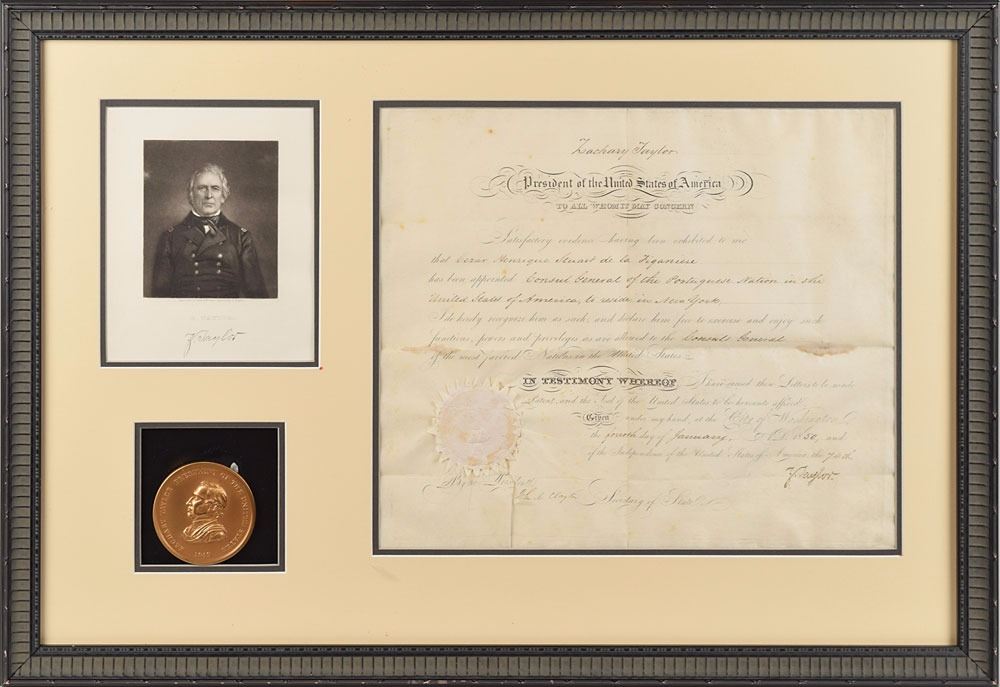 Z. Taylor
ZACHARY TAYLOR PRESIDENT OF THE UNITED STATES
Zachary Taylor
President of the United States of America
TO ALL WHOM IT MAY CONCERN
Satisfactory evidence having been exhibited to me
that Cezar Henrique Stuart de la Figaniere
has been appointed Consul General of the Portuguese Nation in the
United States of America, to reside in New York,
I do hereby recognize him as such, and declare him free to exercise and enjoy such
functions, powers and privileges as are allowed to the Consuls General
of the most favored Nations in the United States.
IN TESTIMONY WHEREOF, I have caused these Letters to be made
Patent, and the Seal of the United States to be hereunto affixed.
Given under my hand, at the City of Washington,
the fourth day of January, A.D. 1850, and
of the Independence of the United States of America, the 74th.
Z. Taylor
By the President
John M. Clayton Secretary of State.